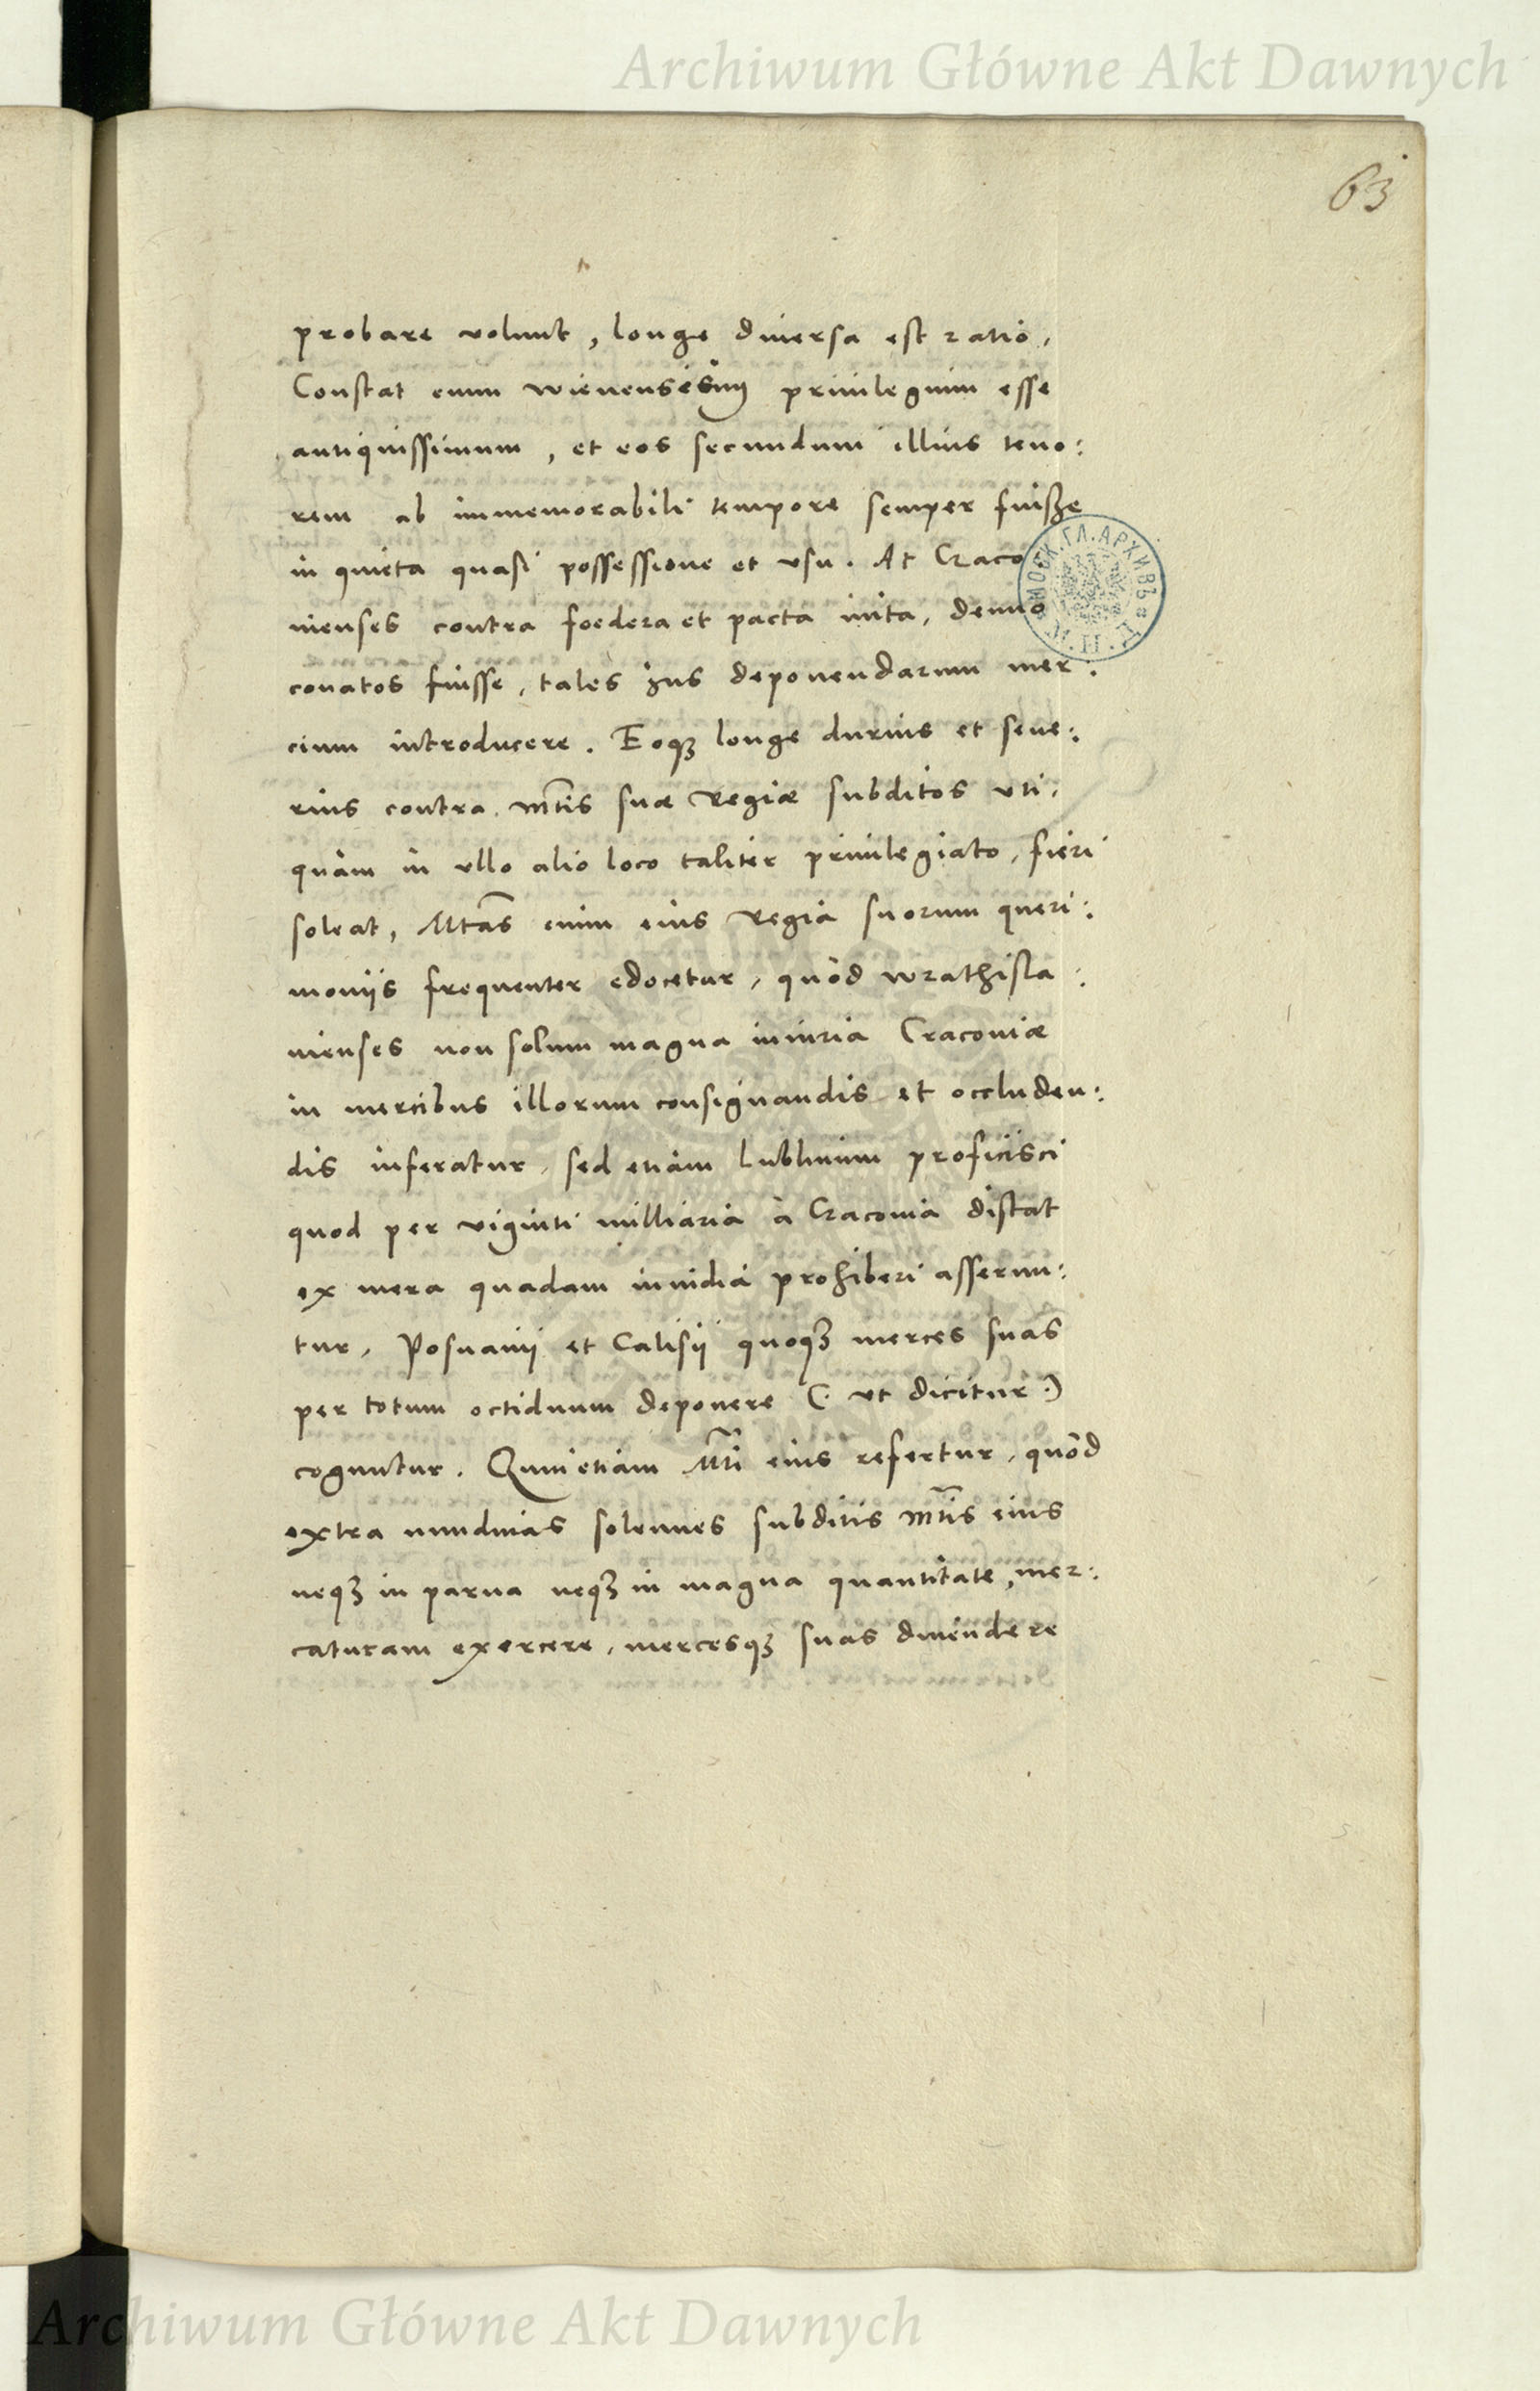 Archiwum Główne Akt Dawnych
63
probare volunt, longe diuersa est ratio,
Constat enim Wienensium priuilegium esse
antiquissimum, et eos secundum illius teno:
rem ab immemorabili tempore semper fuisse
in quieta quasi possessione et vsu. At Craco
МОСК. ГЛ. АРХИВЪ
nienses contra foedera et pacta inita, denuo
conatos fuisse, tales ius deponendarum mer:
cium introducere. Eoq3 longe durius et seue:
rius contra Mtis suæ Regiæ subditos vti,
quàm in vllo alio loco taliter priuilegiato, fieri
soleat, Mtas enim eius Regia suorum queri:
moniis frequenter edocetur, quòd Wrathisla:
uienses non solum magna iniuria Cracouiæ
in mercibus illorum consignandis et occluden:
dis inferatur, sed etiam Lublinum proficisci
quod per viginti milliaria à Cracouia distat
ex mera quadam inuidia prohiberi asserun:
tur, Posnanij et Calisij quoq3 merces suas
per totum octiduum deponere (: vt dicitur :)
coguntur. Quin etiam Mti eius refertur, quòd
extra nundinas solennes subditis Mtis eius
neq3 in parua neq3 in magna quantitate, mer:
caturam exercere, mercesq3 suas diuendere
Archiwum Główne Akt Dawnych